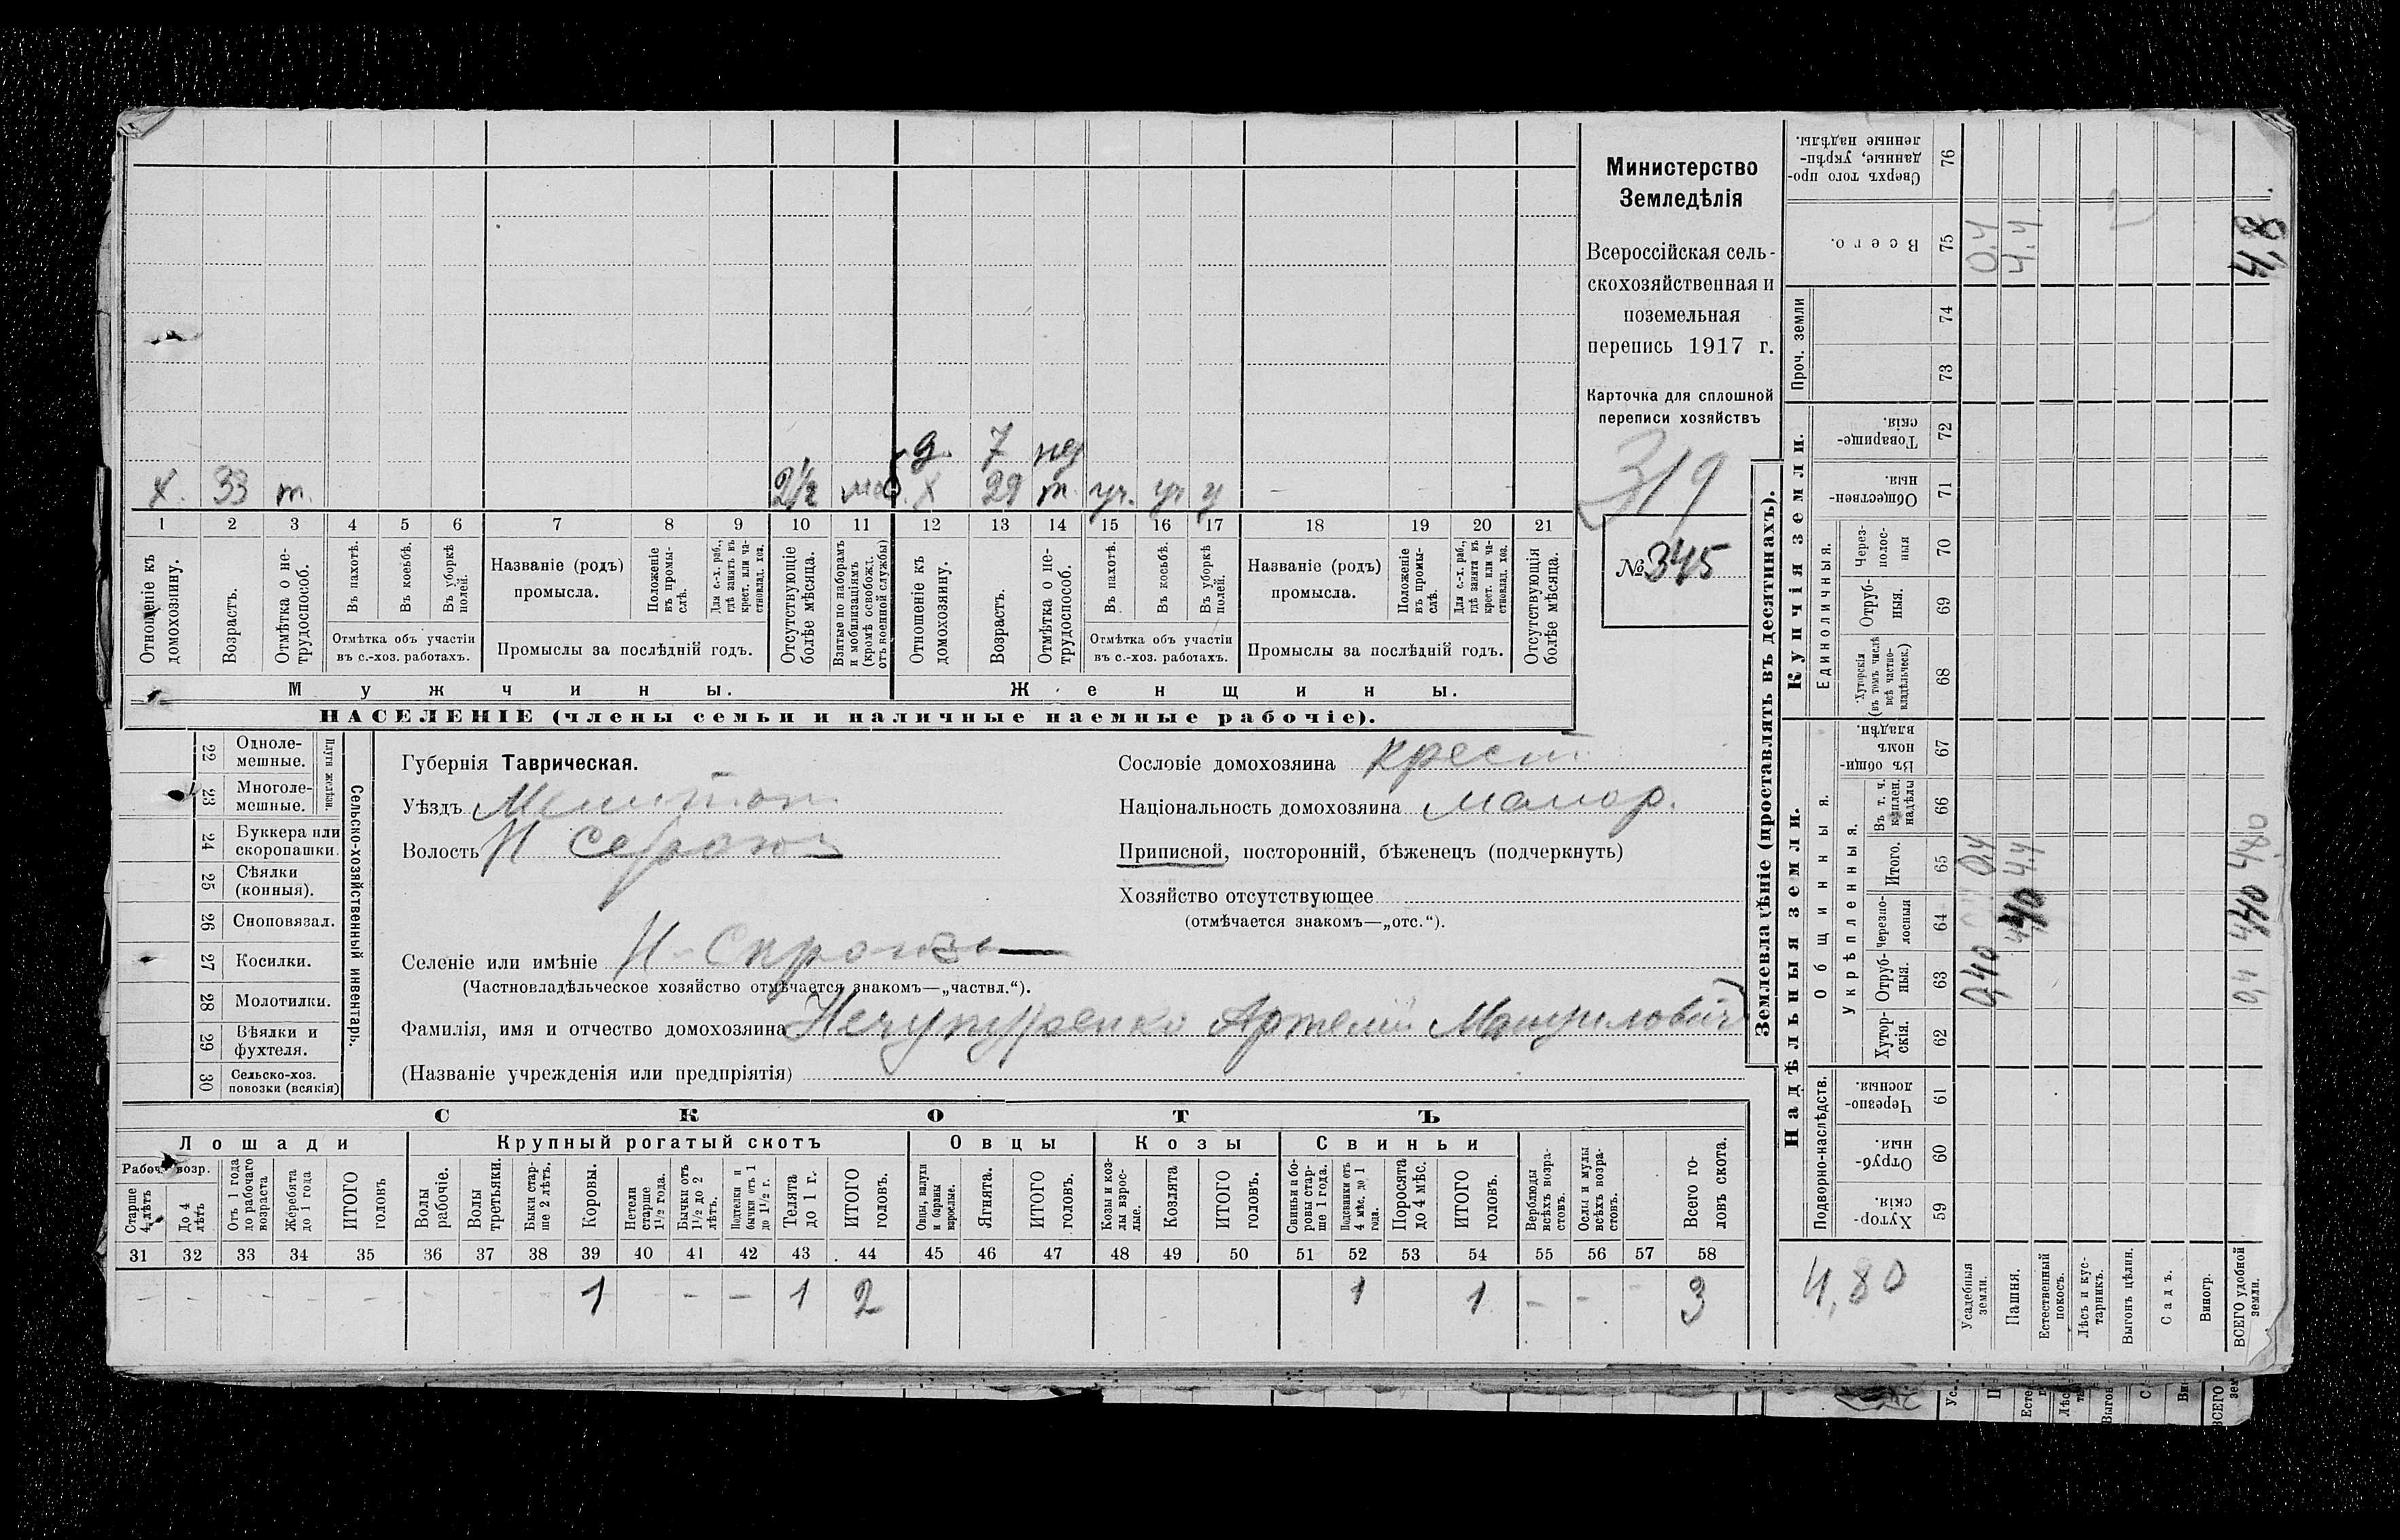 Министерство
Земледѣлія
Всероссійская сель-
скохозяйственная и
поземельная
перепись 1917 г.
Карточка для сплошной
переписи хозяйствъ
319
№ 345
д. 7 нед
х. 33 т. 2½ х 29 т. уч. уч у
1 2 3 4 5 6 7 8 9 10 11 12 13 14 15 16 17 18 19 20 21
Отношеніе къ домохозяину.
Возрастъ.
Отмѣтка о не-трудоспособ.
Въ пахотѣ.
Въ косьбѣ.
Въ уборкѣ полей.
Отмѣтка объ участіи
въ с.-хоз. работахъ.
Названіе (родъ)
промысла.
Положеніе въ промы-слѣ.
Для с.-х. раб., гдѣ занятъ въ крест. или ча-стновлад. хоз.
Промыслы за послѣдній годъ.
Отсутствующіе болѣе мѣсяца.
Взятые по наборамъ и мобилизаціямъ (кромѣ освобожд. отъ военной службы)
Отношеніе къ домохозяину.
Возрастъ.
Отмѣтка о не-трудоспособ.
Въ пахотѣ.
Въ косьбѣ.
Въ уборкѣ полей.
Отмѣтка объ участіи
въ с.-хоз. работахъ.
Названіе (родъ)
промысла.
Положеніе въ промы-слѣ.
Для с.-х. раб., гдѣ занята въ крест. или ча-стновлад. хоз.
Промыслы за послѣдній годъ.
Отсутствующія болѣе мѣсяца.
Мужчины. Женщины.
НАСЕЛЕНІЕ (члены семьи и наличные наемные рабочіе).
22 Одноле-мешные.
23 Многоле-мешные.
Плуги желѣзн.
24 Буккера или скоропашки.
25 Сѣялки (конныя).
26 Сноповязал.
27 Косилки.
28 Молотилки.
29 Вѣялки и фухтеля.
30 Сельско-хоз. повозки (всякія)
Сельско-хозяйственный инвентарь.
Губернія Таврическая.
Уѣздъ Мелитоп.
Волость Н Серогоз
Селеніе или имѣніе Н-Сирогозы
(Частновладѣльческое хозяйство отмѣчается знакомъ—„частвл.“).
Фамилія, имя и отчество домохозяина Нечипуренко Артемій Мануилович
(Названіе учрежденія или предпріятія)
Сословіе домохозяина крест
Національность домохозяина малор.
Приписной, посторонній, бѣженецъ (подчеркнуть)
Хозяйство отсутствующее
(отмѣчается знакомъ—„отс.“).
СКОТЪ
Лошади Крупный рогатый скотъ Овцы Козы Свиньи
Рабоч. возр.
Старше 4 лѣтъ
До 4 лѣтъ
Отъ 1 года до рабочаго возраста
Жеребята до 1 года
ИТОГО головъ
Волы рабочіе.
Волы третьяки.
Быки стар-ше 2 лѣтъ.
Коровы.
Нетели старше 1½ года.
Бычки отъ 1½ до 2 лѣтъ.
Подтелки и бычки отъ 1 до 1½ г.
Телята до 1 г.
ИТОГО головъ.
Овцы, валухи и бараны взрослые.
Ягнята.
ИТОГО головъ.
Козы и коз-лы взрос-лые.
Козлята
ИТОГО головъ.
Свиньи и бо-ровы стар-ше 1 года.
Подсвинки отъ 4 мѣс. до 1 года.
Поросята до 4 мѣс.
ИТОГО головъ.
Верблюды всѣхъ возра-стовъ.
Ослы и мулы всѣхъ возра-стовъ.
Всего го-ловъ скота.
31 32 33 34 35 36 37 38 39 40 41 42 43 44 45 46 47 48 49 50 51 52 53 54 55 56 57 58
- - - - - - - - 1 - - 1 2 1 1 - - - 3
Землевладѣніе (проставлять въ десятинахъ).
Надѣльныя земли. Купчія земли. Проч. земли
Подворно-наслѣдств.
Общинныя.
Укрѣпленныя.
Единоличныя.
Хутор-скія. 59
Отруб-ныя. 60
Черезпо-лосныя. 61
Хутор-скія. 62
Отруб-ныя. 63
Черезпо-лосныя 64
Итого. 65
Въ т. ч. куплен. надѣлы 66
Въ общи-номъ владѣн. 67
Хуторскія (въ томъ числѣ всѣ частно-владѣльческ.) 68
Отруб-ныя. 69
Через-полос-ныя 70
Обществен-ныя. 71
Товарище-скія. 72
73
74
Всего. 75
Сверхъ того про-данные, укрѣп-ленные надѣлы. 76
4,80
Усадебныя земли. 0,40 0,4 0,4
Пашня. 4,40 4.4 4.4
Естественный покосъ.
Лѣсъ и кус-тарникъ.
Выгонъ цѣлин.
Садъ.
Виногр.
ВСЕГО удобной земли. 0,4 4,40 4,80 4,8